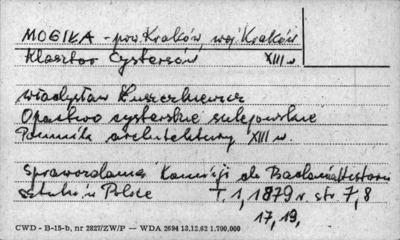 MOGIŁA - pow. Kraków, woj. Kraków
Klasztor Cystersów XIII w.
Władysław Łuszczkiewicz
Opactwo cysterskie sulejowskie
Pomnik architektury XIII w.
Sprawozdania Komisji do Badania Historii
Sztuki w Polsce T. 1, 1879 r. str 7, 8
17, 19,
CWD - B-15-b, nr 2827/ZW/P — WDA 2694 13.12.62 1.700.000